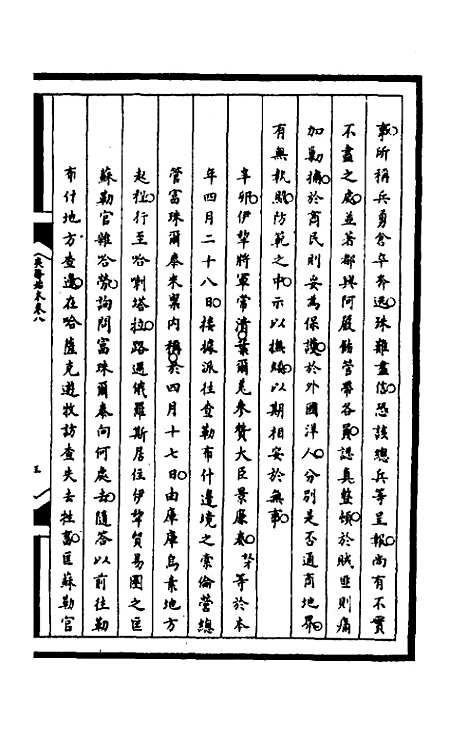 事所稱兵勇舍卒奔逃殊難盡信恐該總兵等呈報尚有不實
不盡之處並著鄒興阿嚴飭管帶各員認真整頓於賊匪則痛
加剿捕於商民則妥為保護於外國洋人分別是否通商地界
有無執照防範之中示以撫綏以期相安於無事
辛卯伊犂將軍常清葉爾羌參贊大臣景廉奏等於本
年四月二十八日接據派往查勒布什邊境之索倫營總
管富珠爾泰來稟內稱於四月十七日由庫庫烏素地方
起程行至哈喇塔拉路遇俄羅斯居住伊犂貿易圈之匡
蘇勒官雜哈勞詢問富珠爾泰向何處去隨答以前往勒
布什地方查邊在哈薩克遊牧訪查失去牲畜匡蘇勒官
夷務始末卷八
五